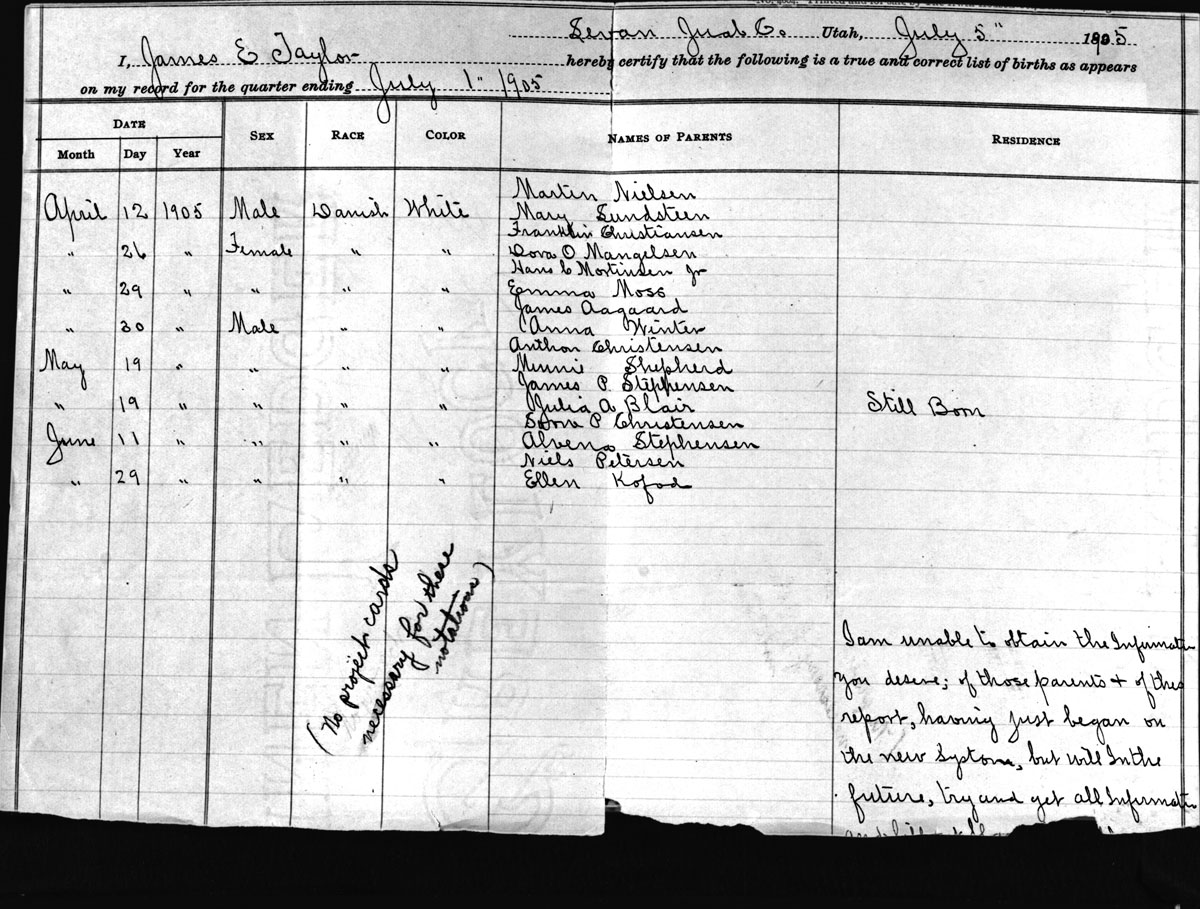 Levan Juab Co. Utah, July 5" 1905
I, James E Taylor hereby certify that the following is a true and correct list of births as appears
on my record for the quarter ending July 1" 1905
DATE SEX RACE COLOR NAMES OF PARENTS RESIDENCE
Month Day Year
Martin Nielsen
April 12 1905 Male Danish White Mary Sundsteen
Franklin Christiansen
" 26 " Female " " Dora O Mangelsen
Hans C Mortinsen Jr
" 29 " " " " Emma Moss
James Aagaard
" 30 " Male " " Anna Winter
Anthon Christensen
May 19 " " " " Minnie Shepherd
James P. Stephensen
" 19 " " " " Julia A Blair Still Born
P Christensen
June 11 " " " " Alvena Stephensen
Niels Petersen
" 29 " " " " Ellen Kofod
(No project cards
necessary for these
notations)
I am unable to obtain the Informatin
you desere; of those parents + of this
report, having just began on
the new System, but will In the
future, try and get all Informatin